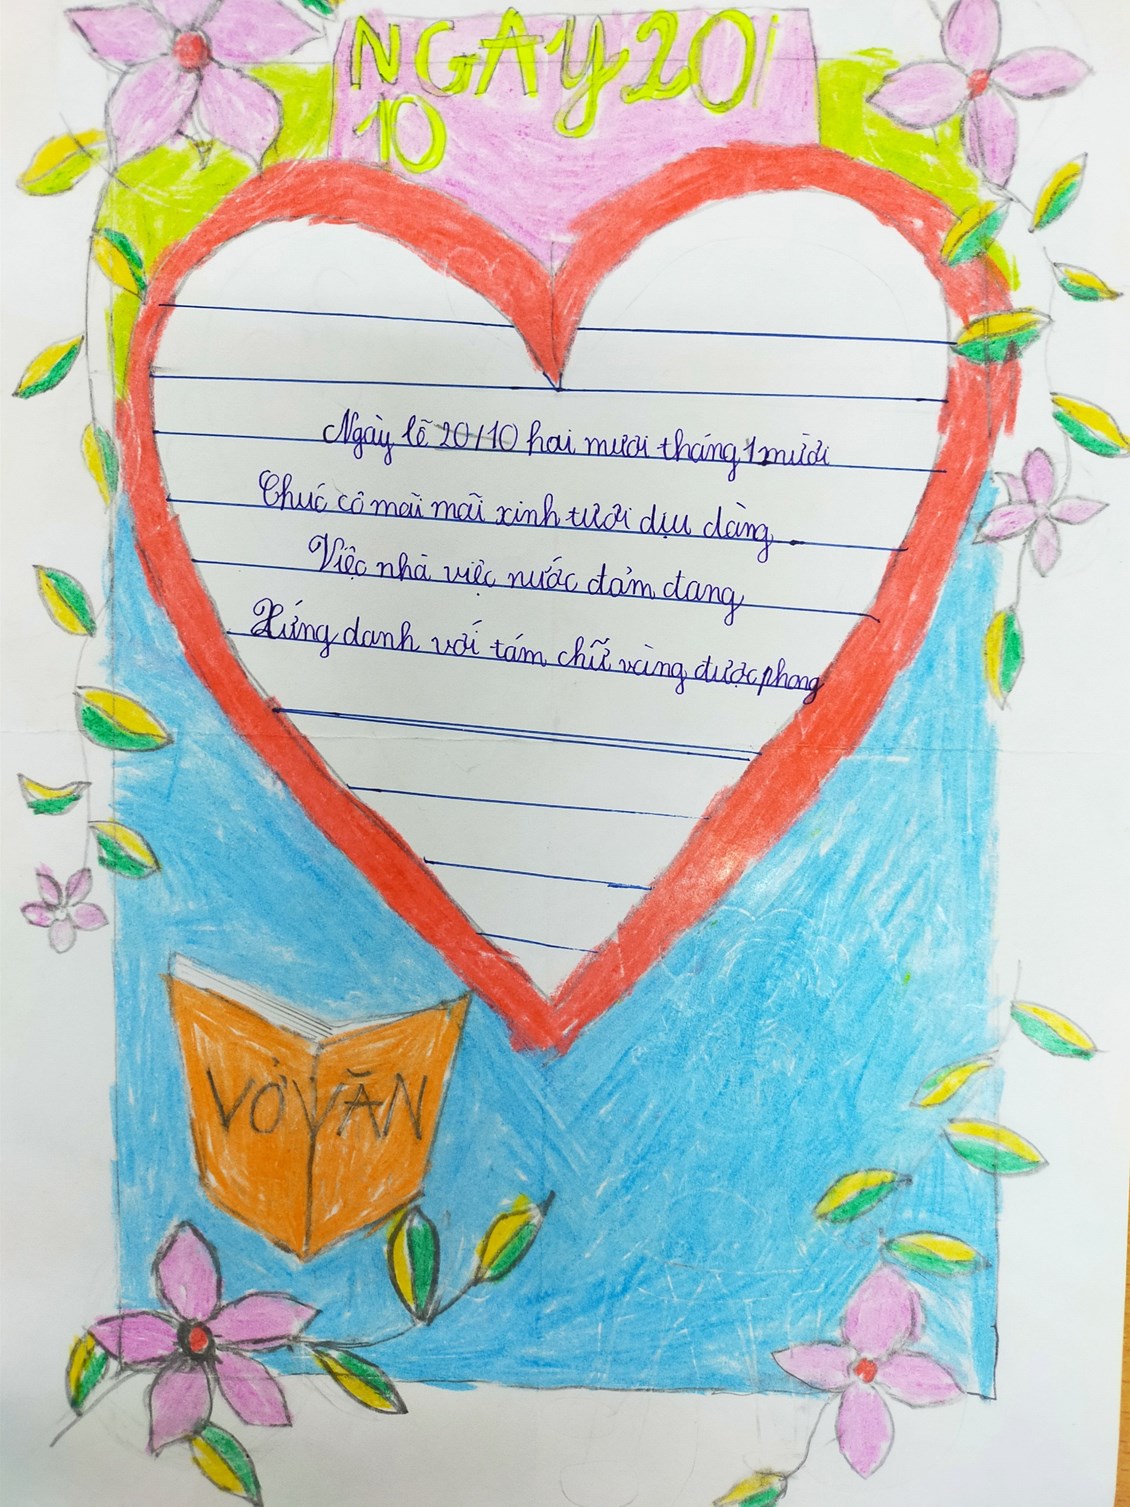 NGAY 20/
10
Ngày lễ 20/10 hai mươi tháng mười
Chúc cô mãi mãi xinh tươi dịu dàng
Việc nhà việc nước đảm đang
Xứng danh với tám chữ vàng được phong
VỞ VĂN